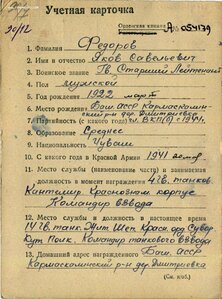 Учетная карточка
20/12
Орденская книжка А 054139
1. Фамилия Федоров
2. Имя и отчество Яков Савельевич
3. Воинское звание Гв. Старший Лейтенант
4. Пол мужской
5. Год рождения 1922 март
6. Место рождения Баш асср Кармаскалин
ский р-н дер. Дмитровка
7. Партийность (с какого года) чл. ВКП(б) 1944г.
8. Образование Среднее
9. Национальность Чуваш
10. С какого года в Красной Армии 1941
11. Место службы (наименование части) и занимаемая
должность в момент награждения 4 гв. танков
Кантемир Краснознам корпус
Командир взвода
12. Место службы и должность в настоящее время
14 гв. танк Жит Шеп Красн орд Сувор
Кут Полк. Командир танкового взвода
13. Домашний адрес награжденного Баш асср
Кармаскалинский р-н дер. Дмитровка
(См. на об.)